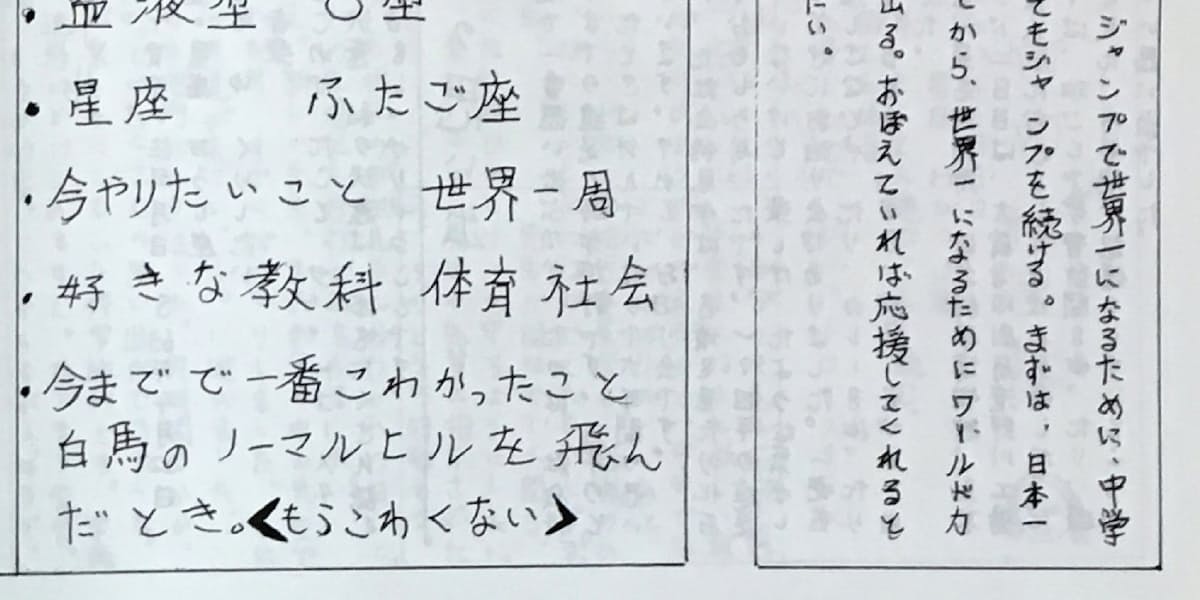 ・血液型 O型
・星座 ふたご座
・今やりたいこと 世界一周
・好きな教科 体育 社会
・今までで一番こわかったこと
白馬のノーマルヒルを飛ん
だとき。<もうこわくない>
ジャンプで世界一になるために、中学
てもジャンプを続ける。まずは、日本一
から、世界一になるためにワールドカ
出る。おぼえていれば応援してくれると
い。